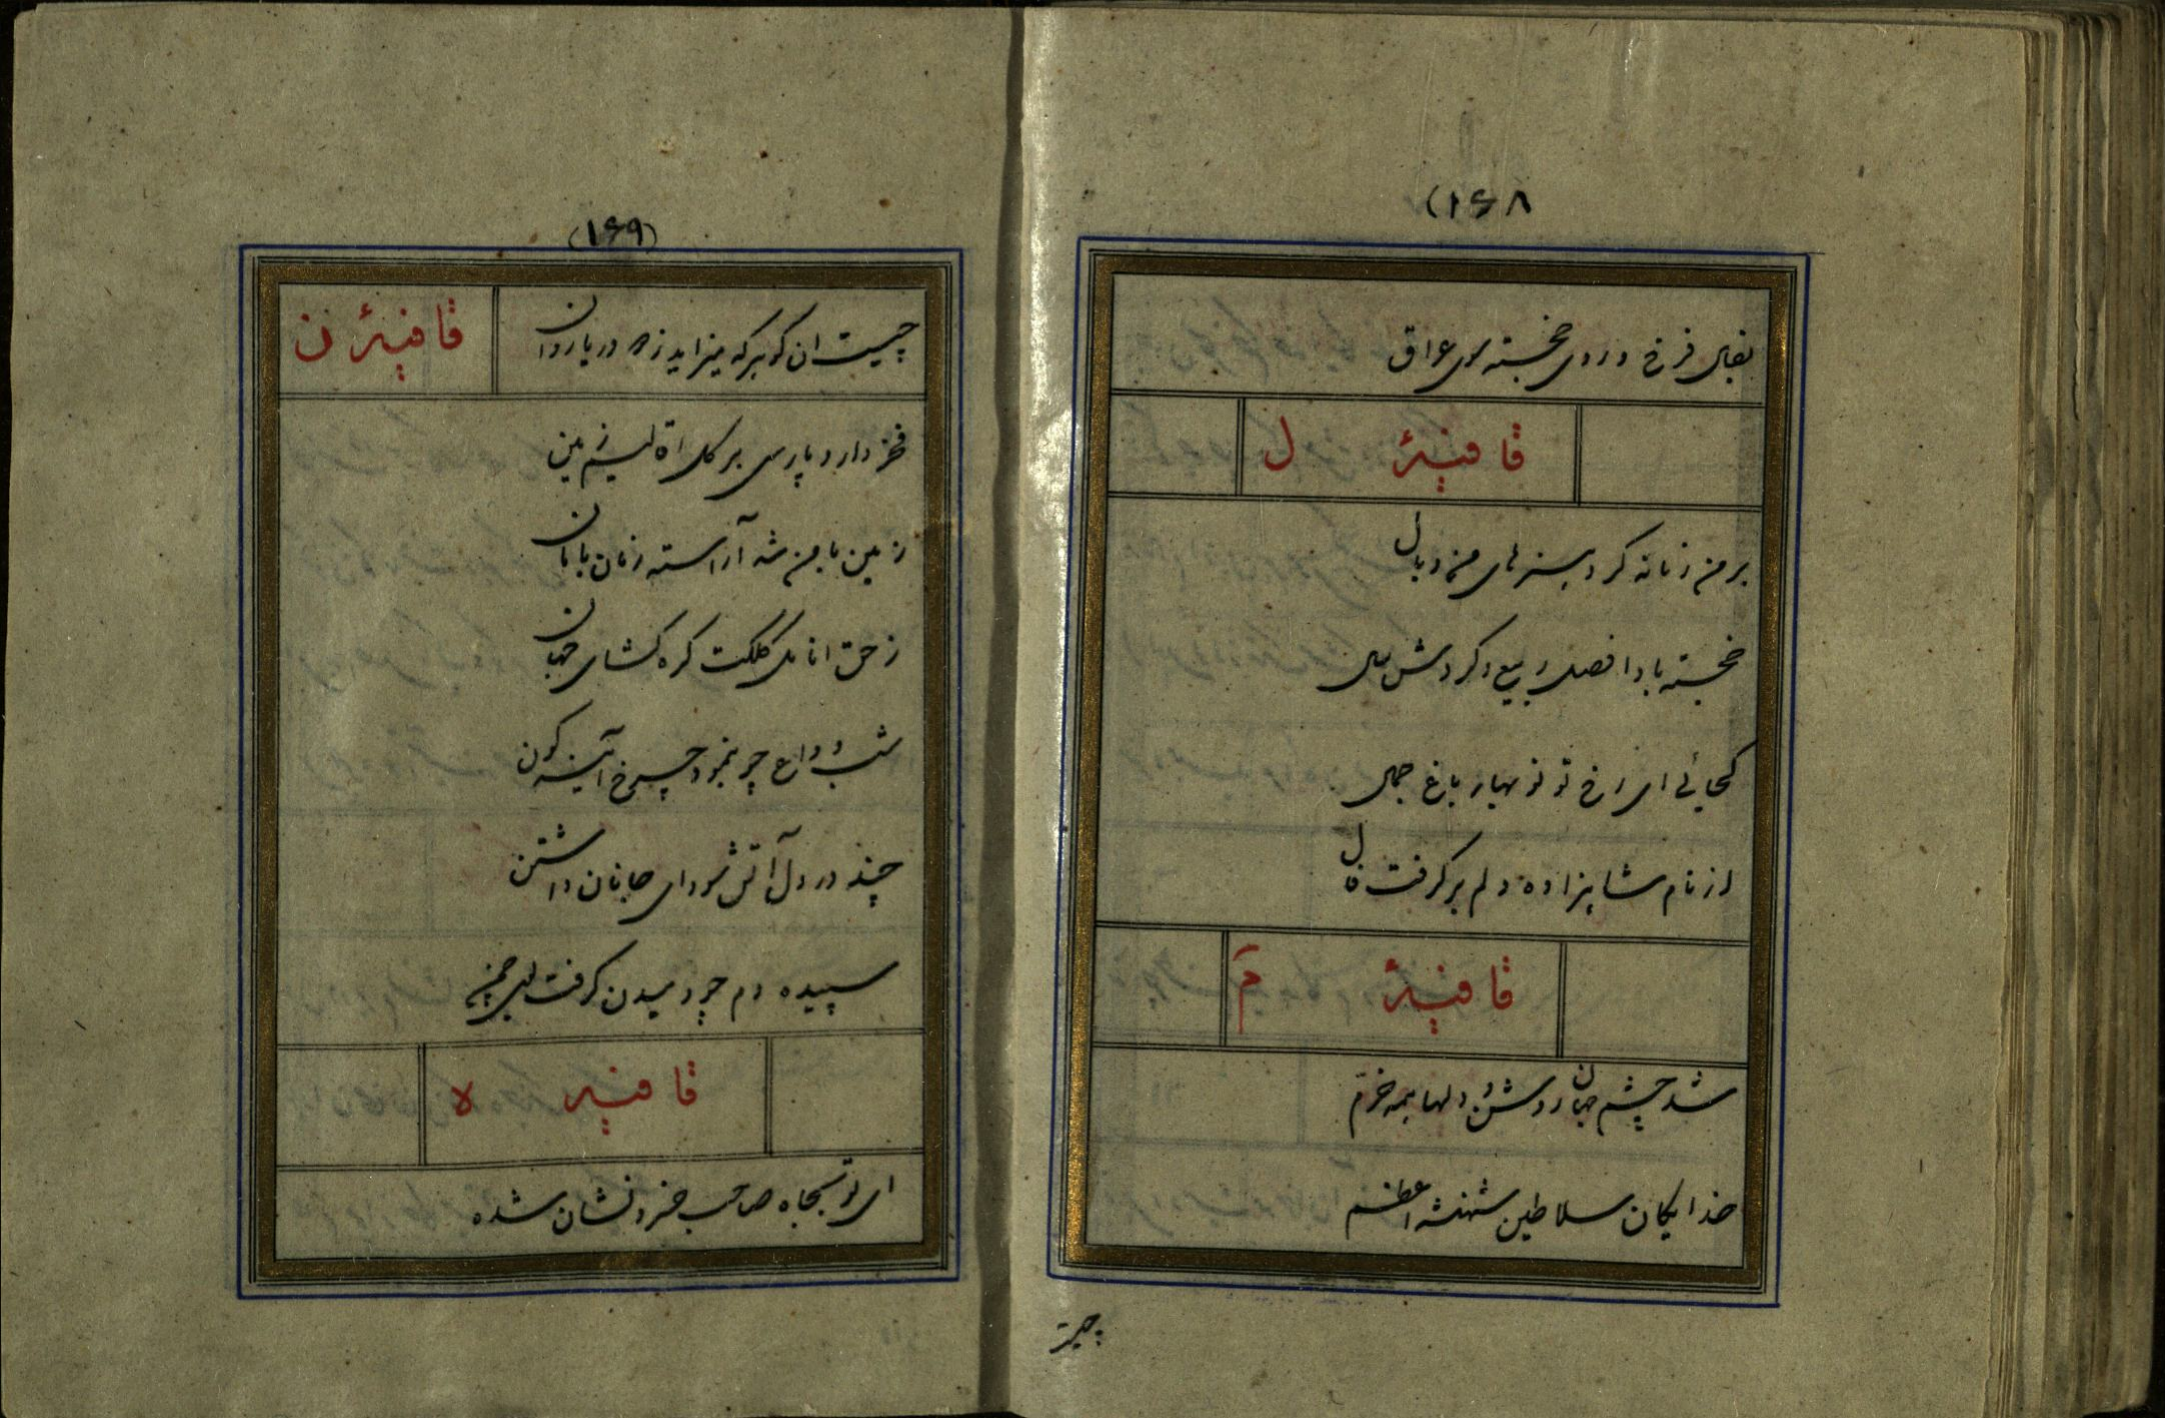 (۱۶۸
بفال فرخ و روی خجسته سوی عراق
قافیهٔ ل
بر من زمانه کرد هنرهای من وبال
خجسته بادا فصل ربیع و گردش سال
کجائی ای رخ تو نوبهار باغ جمال
از نام شاهزاده دلم بر گرفت فال
قافیهٔ م
شد چشم جهان روشن و دلها همه خرم
خدایگان سلاطین شهنشه اعظم
چیست
(۱۶۹)
چیست ان گوهر که میزاید ز دریا روان
قافیهٔ ن
فخر دارد پارسی بر کل اقلیم زمین
زمین بامن شه آراسته زمان بامان
ز حق انامل کلکت گره گشای جهان
شب وداع چو بنمود چرخ آینه گون
چند در دل آتش سودای جانان داشتن
سپیده دم چو دمیدن گرفت
قافیه ه
ای تو بجاه صاحب خسرو نشان شده